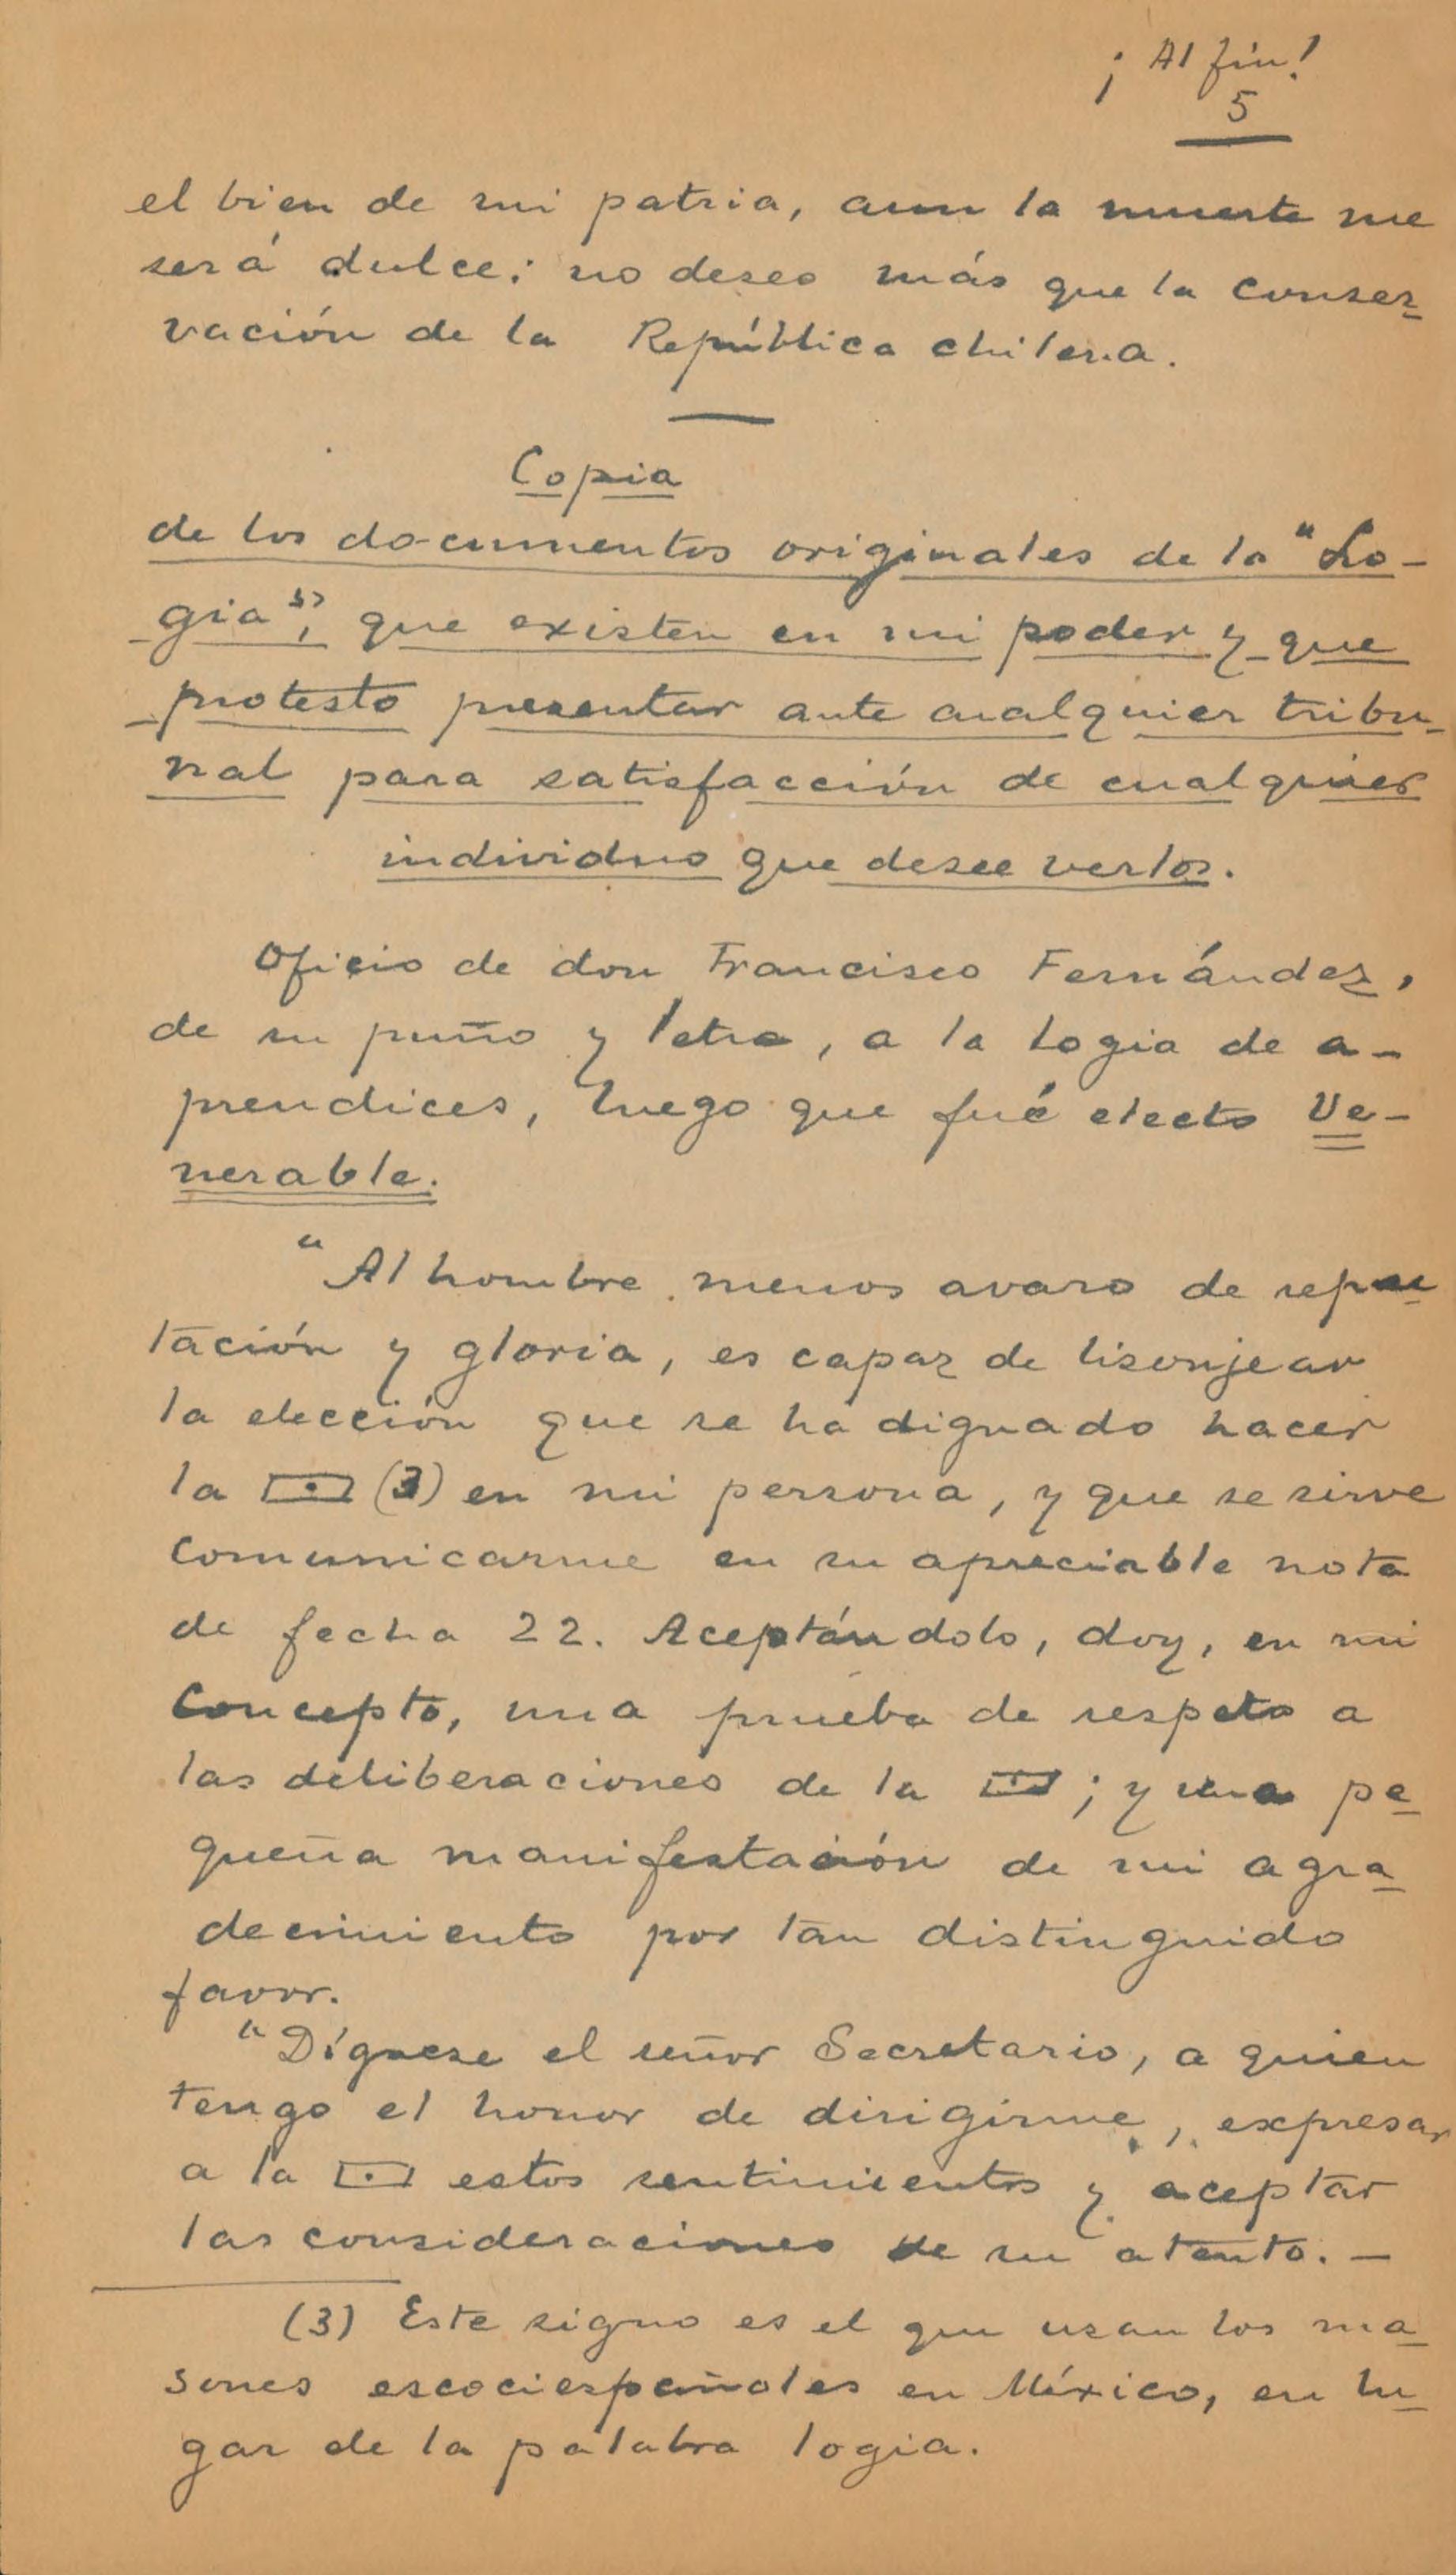 ¡Al fin!
5
el bien de mi patria, aun la muerte me
será dulce; no deseo más que la conser-
vación de la República chilena.
Copia
de los documentos originales de la "Lo-
gia", que existen en mi poder y que
protesto presentar ante cualquier tribu-
nal para satisfacción de cualquier
individuo que desee verlos.
Oficio de don Francisco Fernández,
de su puño y letra, a la Logia de a-
prendices, luego que fué electo Ve-
nerable.
"Al hombre menos avaro de repu-
tación y gloria, es capaz de lisonjear
la elección que se ha dignado hacer
la (3) en mi persona, y que se sirve
comunicarme en su apreciable nota
de fecha 22. Aceptándolo, doy, en mi
concepto, una prueba de respeto a
las deliberaciones de la ; y una pe-
queña manifestación de mi agra-
decimiento por tan distinguido
favor.
"Dígnese el señor Secretario, a quien
tengo el honor de dirigirme, expresar
a la estos sentimientos y aceptar
las consideraciones de su atento. —
(3) Este signo es el que usan los ma-
sones escociespañoles en México, en lu-
gar de la palabra logia.